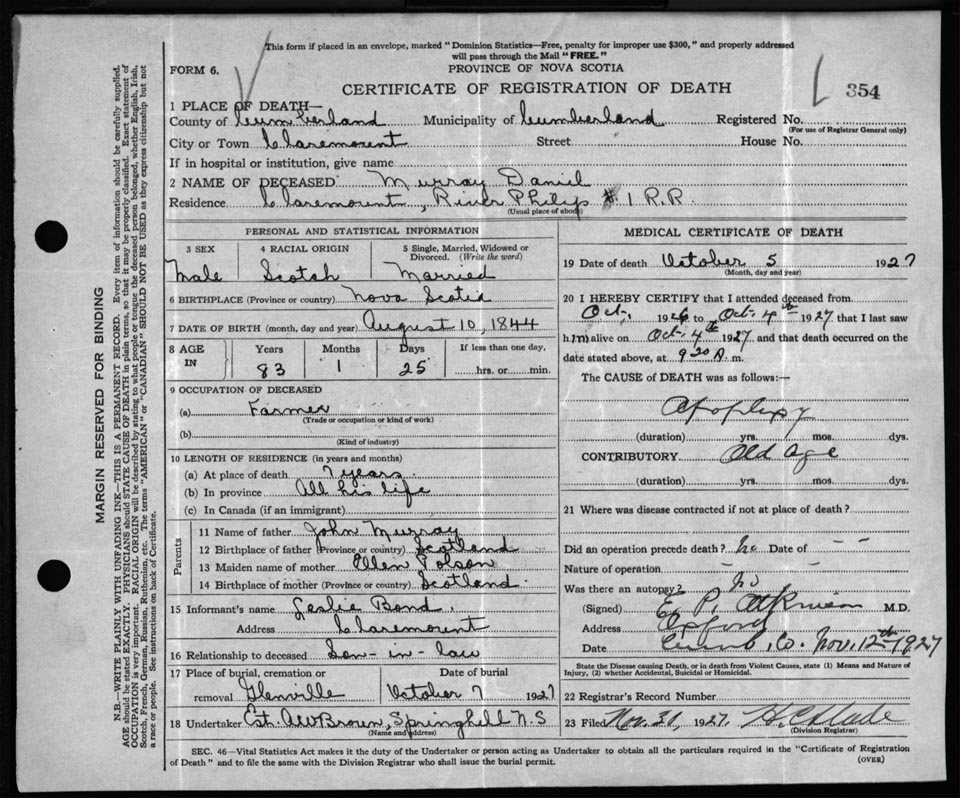 This form if placed in an envelope, marked "Dominion Statistics—Free, penalty for improper use $300," and properly addressed
will pass through the Mail "FREE."
FORM 6.
PROVINCE OF NOVA SCOTIA
CERTIFICATE OF REGISTRATION OF DEATH
354
1 PLACE OF DEATH—
County of Cumberland Municipality of Cumberland Registered No.
(For use of Registrar General only)
City or Town Claremount Street House No.
If in hospital or institution, give name
2 NAME OF DECEASED Murray Daniel
Residence Claremount, River Philip #1 R.R.
(Usual place of abode)
PERSONAL AND STATISTICAL INFORMATION
3 SEX 4 RACIAL ORIGIN 5 Single, Married, Widowed or
Divorced. (Write the word)
Male Scotch Married
6 BIRTHPLACE (Province or country) Nova Scotia
7 DATE OF BIRTH (month, day and year) August 10, 1844
8 AGE IN Years Months Days If less than one day,
83 1 25 hrs. or min.
9 OCCUPATION OF DECEASED
(a) Farmer
(Trade or occupation or kind of work)
(b)
(Kind of industry)
10 LENGTH OF RESIDENCE (in years and months)
(a) At place of death 7 years
(b) In province All his life
(c) In Canada (if an immigrant)
Parents
11 Name of father John Murray
12 Birthplace of father (Province or country) Scotland
13 Maiden name of mother Ellen Polson
14 Birthplace of mother (Province or country) Scotland
15 Informant's name Leslie Bond
Address Claremount
16 Relationship to deceased Son-in-law
17 Place of burial, cremation or Date of burial
removal Glenville October 7 1927
18 Undertaker Est. A W Brown, Springhill N.S
(Name and address)
MEDICAL CERTIFICATE OF DEATH
19 Date of death October 5 1927
(Month, day and year)
20 I HEREBY CERTIFY that I attended deceased from
Oct, 1926 to Oct. 4th 1927 that I last saw
h.im alive on Oct. 4th 1927 and that death occurred on the
date stated above, at 9 20 A. m.
The CAUSE OF DEATH was as follows:—
Apoplexy
(duration) yrs. mos. dys.
CONTRIBUTORY Old Age
(duration) yrs. mos. dys.
21 Where was disease contracted if not at place of death?
Did an operation precede death? No Date of - -
Nature of operation - -
Was there an autopsy? No
(Signed) E. P. Atkinson M.D.
Address Oxford
Date Cumb. Co. Nov. 12th 1927
State the Disease causing Death, or in death from Violent Causes, state (1) Means and Nature of
Injury, (2) whether Accidental, Suicidal or Homicidal.
22 Registrar's Record Number
23 Filed Nov. 30, 1927. H. C. Slade
(Division Registrar)
SEC. 46—Vital Statistics Act makes it the duty of the Undertaker or person acting as Undertaker to obtain all the particulars required in the "Certificate of Registration
of Death" and to file the same with the Division Registrar who shall issue the burial permit.
(OVER)
MARGIN RESERVED FOR BINDING
N.B.—WRITE PLAINLY WITH UNFADING INK—THIS IS A PERMANENT RECORD. Every item of information should be carefully supplied.
AGE should be stated EXACTLY. PHYSICIANS should STATE CAUSE OF DEATH in plain terms, so that it may be properly classified. Exact statement of
OCCUPATION is very important. RACIAL ORIGIN will be described by stating to what people or tongue the deceased person belonged, whether English, Irish,
Scotch, French, German, Russian, Ruthenian, etc. The terms "AMERICAN" or "CANADIAN" SHOULD NOT BE USED as they express citizenship but not
a race or people. See instructions on back of Certificate.